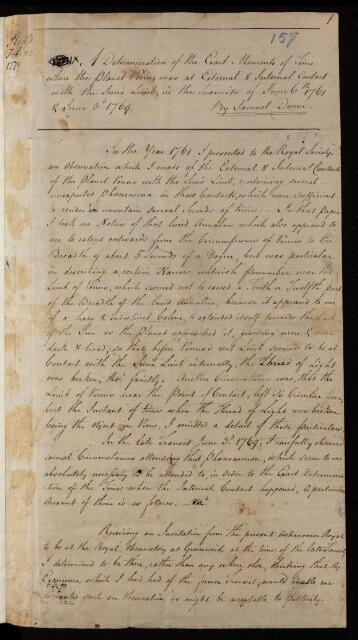 157
1
1770
A Determination of the Exact Moments of Time
when the Planet Venus was at External & Internal Contact
with the Suns Limb, in the Transits of June 6th 1761
& June 3d 1769. By Samuel Dunn.
In the Year 1761 I presented to the Royal Society
an Observation which I made of the External & Internal Contacts
of the Planet Venus with the Suns Limb, containing several
unexpected Phænomena in those Contacts, which were sufficient
to render uncertain several Seconds of time. In that Paper
I took no Notice of that lucid Annulus which also appeared to
me to extend outwards from the Circumference of Venus to the
Breadth of about 5 Seconds of a Degree, but was particular
in describing a certain Narrow watrish penumbra near the
Limb of Venus, which seemed not to exceed a Tenth or Twelfth part
of the Breadth of the lucid Annulus, because it appeared to me
of a hazy & indistinct Colour, & extended itself towards the Limb
of the Sun as the Planet approached it, growing more & more
dark & broad, so that before Venus's real Limb seemed to be at
Contact with the Suns Limb internally, the Thread of Light
was broken, tho' faintly. Another Circumstance was, that the
Limb of Venus near the Point of Contact, left its Circular form,
but the Instant of time when the Thread of Light was broken
being the object in View, I omitted a detail of these particulars
In the late Transit June 3d 1769, I carefully observed
several Circumstances attending that Phænomenon, which seem to me
absolutely necessary to be attended to, in order to the Exact Determina
tion of the Times when the Internal Contact happened, A particular
Account of them is as follows.
Receiving an Invitation from the present Astronomer Royal
to be at the Royal Observatory at Greenwich at the time of the late Transit,
I determined to be there, rather than any where else, thinking that the
Experience which I had had of the former Transit, would enable me
to make such an Observation as might be acceptable to Posterity.